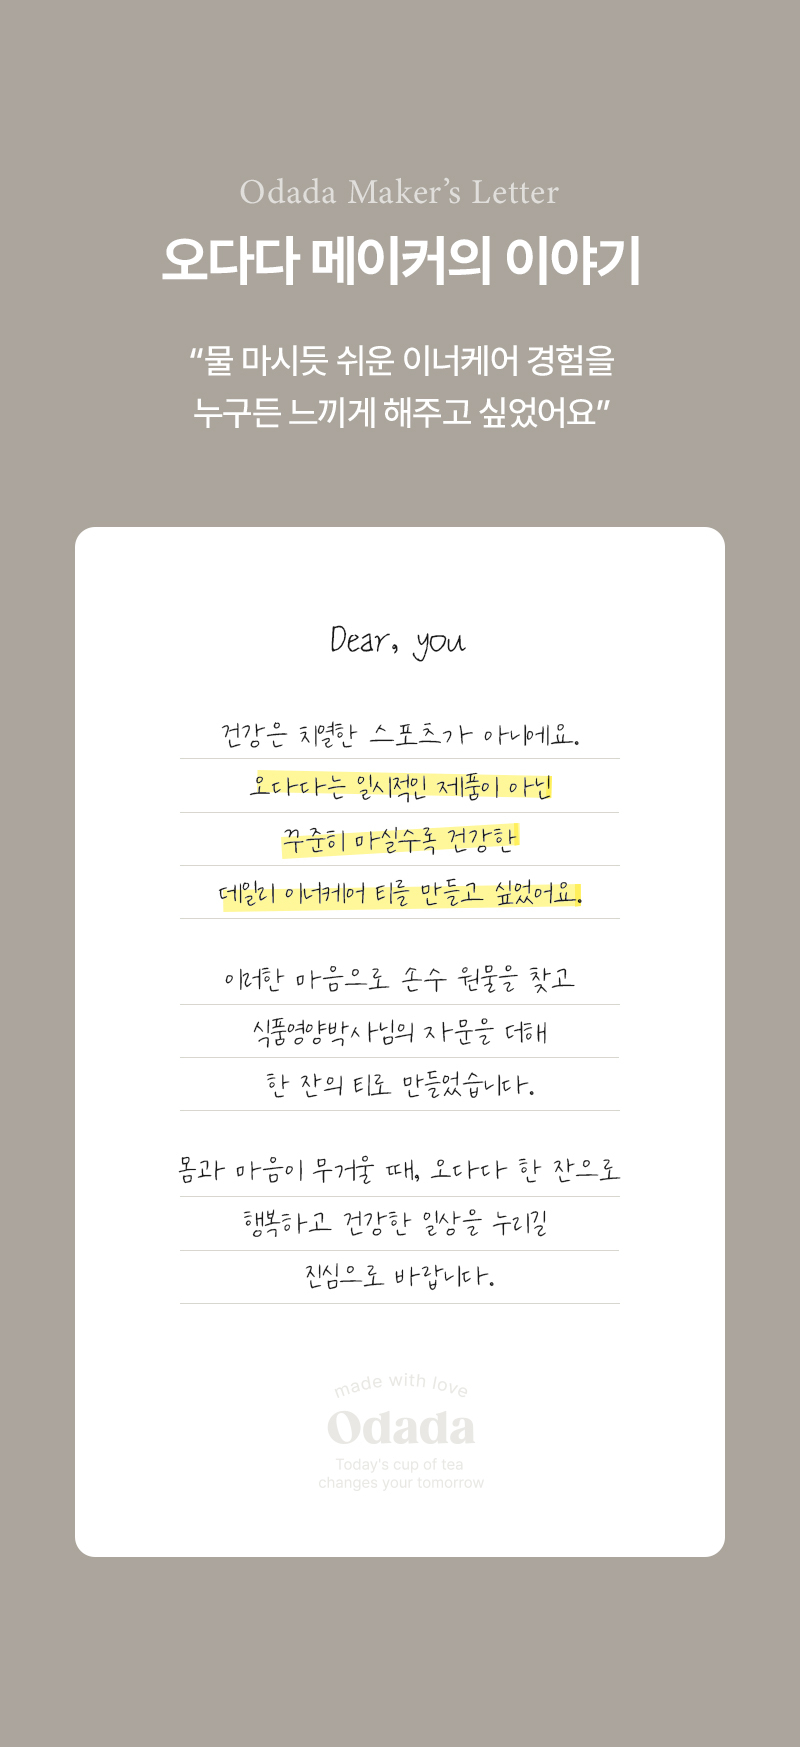 Odada Maker's Letter
오다다 메이커의 이야기
“물 마시듯 쉬운 이너케어 경험을
누구든 느끼게 해주고 싶었어요”
Dear, you
건강은 치열한 스포츠가 아니에요.
오다다는 일시적인 제품이 아닌
꾸준히 마실수록 건강한
데일리 이너케어 티를 만들고 싶었어요.
이러한 마음으로 손수 원물을 찾고
식품영양박사님의 자문을 더해
한 잔의 티로 만들었습니다.
몸과 마음이 무거울 때, 오다다 한 잔으로
행복하고 건강한 일상을 누리길
진심으로 바랍니다.
made with love
Odada
Today's cup of tea
changes your tomorrow